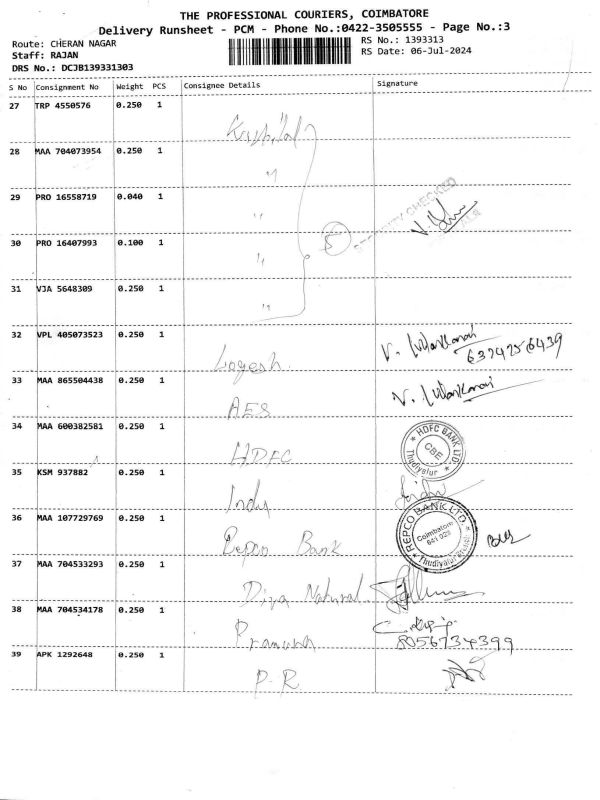 THE PROFESSIONAL COURIERS, COIMBATORE
Delivery Runsheet - PCM - Phone No.:0422-3505555 - Page No.:3
Route: CHERAN NAGAR
Staff: RAJAN
DRS No.: DCJB139331303
RS No.: 1393313
RS Date: 06-Jul-2024
S No Consignment No Weight PCS Consignee Details Signature
27 TRP 4550576 0.250 1
28 MAA 704073954 0.250 1 "
29 PRO 16558719 0.040 1 "
SECURITY CHECKED
30 PRO 16407993 0.100 1 " 5
31 VJA 5648309 0.250 1 "
32 VPL 405073523 0.250 1 Logesh.
6374256439
33 MAA 865504438 0.250 1 AES
34 MAA 600382581 0.250 1 HDFC
HDFC BANK LTD
CBE
Thudiyalur
35 KSM 937882 0.250 1
36 MAA 107729769 0.250 1 Repco Bank
REPCO BANK LTD.
Coimbatore
641 029
Thudiyalur Branch
37 MAA 704533293 0.250 1 Natural.
38 MAA 704534178 0.250 1
8056734399
39 APK 1292648 0.250 1 P-R